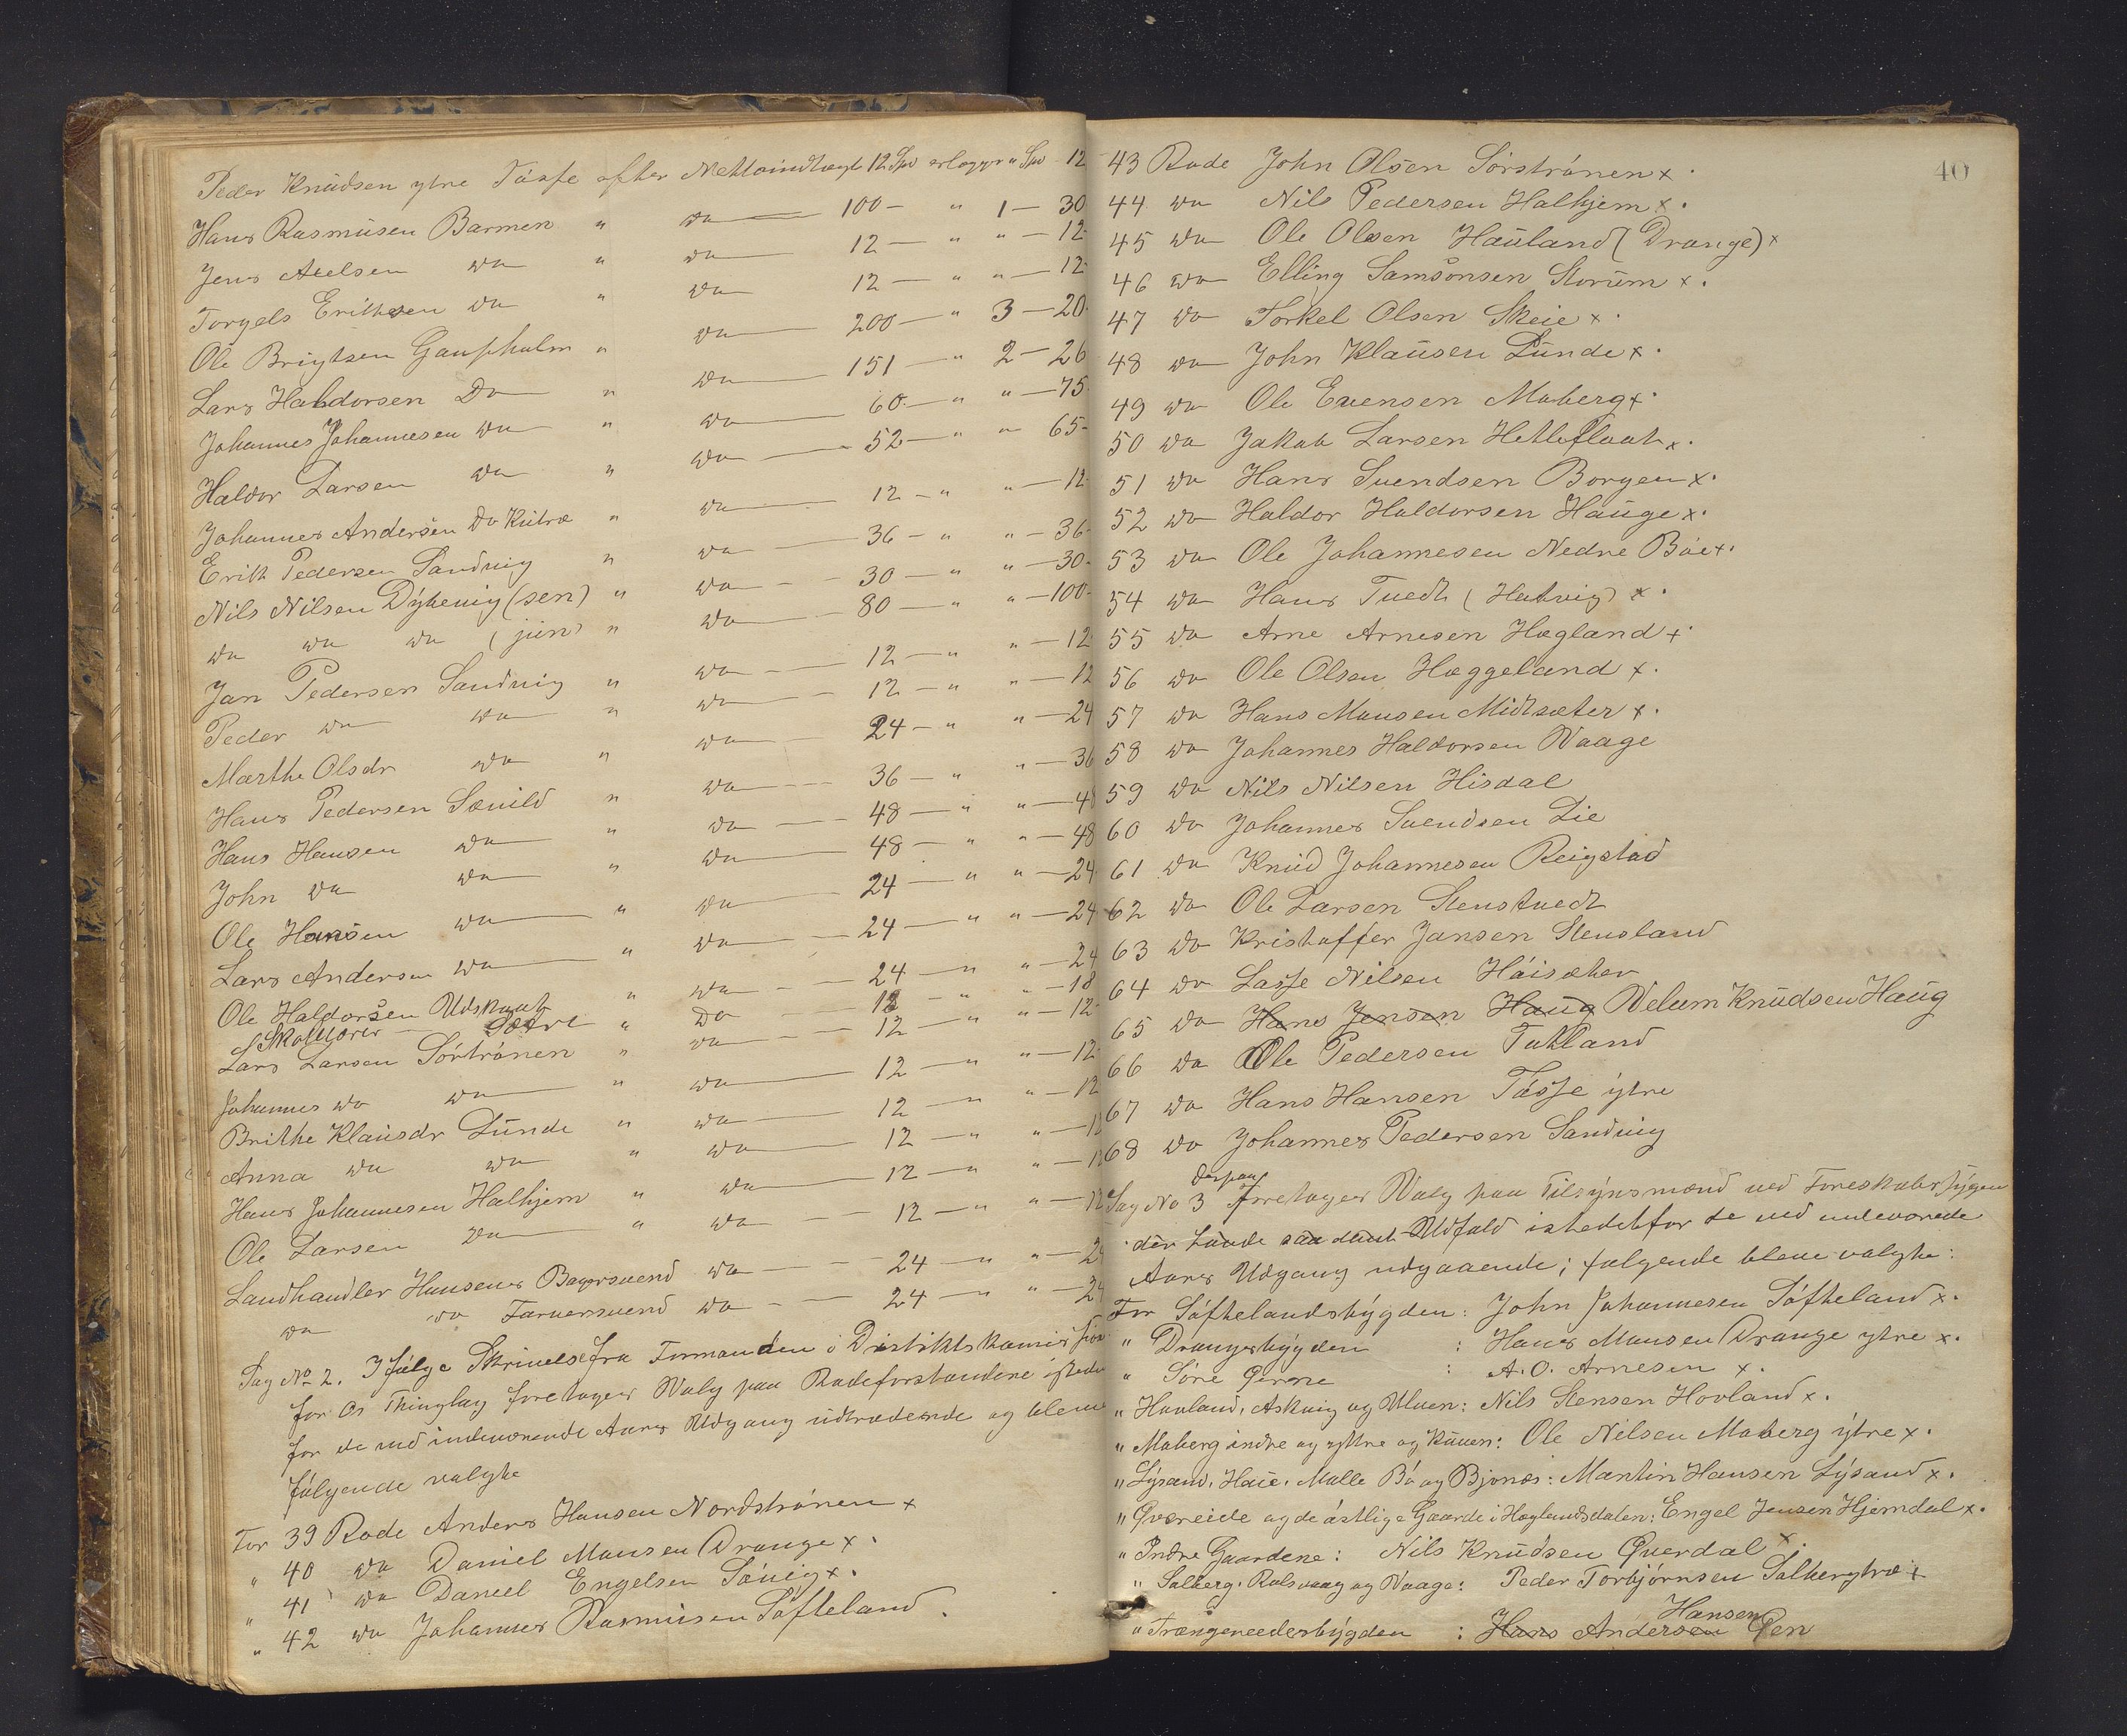 Peder Knudsen ytre Tøsse efter Nettoindtægt 12 Spd erlægger " Spd 12
Hans Rasmusen Barmen " do 100 - " 1 - 30
Jens Axelsen do " do 12 - " " - 12
Torgels Eriksen do " do 12 - " " - 12
Ole Brigtsen Gaupholm " do 200 - " 3 - 20
Lars Haldorsen Do " do 151 - " 2 - 26
Johannes Johannesen do " do 60 - " " - 75
Haldor Larsen do " do 52 - " " 65
Johannes Andersen do Kutræ " do 12 - " " - 12
Erik Pedersen Sandvig " do 36 - " " - 36
Nils Nilsen Dyhevig (sen) " do 30 - " " - 30
do do do (jun) " do 80 - " " - 100
Jan Pedersen Sandvig " do 12 - " " - 12
Peder do do " do 12 - " " - 12
Marthe Olsdr do " do 24 - " " - 24
Hans Pedersen Sævild " do 36 - " " - 36
Hans Hansen do " do 48 - " " - 48
John do do " do 48 - " " - 48
Ole Hansen do " do 24 - " " - 24
Lars Andersen do " do 24 - " " - 24
Ole Haldorsen Udskaat " do 24 - " " - 24
Skolelærer Sætre " Do 18 - " " - 18
Lars Larsen Sørstrønen " do 12 - " " - 12
Johannes do do " do 12 - " " - 12
Brithe Klausdr Lunde " do 12 - " " - 12
Anna do do " do 12 - " " - 12
Hans Johannesen Halhjem " do 12 - " " - 12
Ole Larsen do " do 12 - " " - 12
Landhandler Hansens Bagersvend do 24 - " " - 24
do do Farversvend do 24 - " " - 24
Sag No 2. Ifølge Skrivelse fra Formanden i Distriktskomisjion
for Os Thinglag foretoges Valg paa Rodeforstandere isteden
for de ved indeværende Aars Udgang udtrædende og bleve
følgende valgte
For 39 Rode Anders Hansen Nordstrønen x
" 40 do Daniel Monsen Drange x.
" 41 do Daniel Engelsen Søvig x.
" 42 do Johannes Rasmusen Søfteland.
40
43 Rode John Olsen Sørstrønen x.
44 do Nils Pedersen Halhjem x.
45 do Ole Olsen Hauland (Drange) x
46 do Elling Samsonsen Storum x.
47 do Torkel Olsen Skeie x.
48 do John Klausen Lunde x.
49 do Ole Evensen Moberg x.
50 do Jakob Larsen Hetleflaat x.
51 do Hans Svendsen Borgen x.
52 do Haldor Haldorsen Hauge x.
53 do Ole Johannesen Nedre Bøe x.
54 do Hans Tuedt (Hatvig) x.
55 do Arne Arnesen Hægland x.
56 do Ole Olsen Hæggeland x.
57 do Hans Monsen Midtsæter x.
58 do Johannes Haldorsen Vaage
59 do Nils Nilsen Hisdal
60 do Johannes Svendsen Lie
61 do Knud Johannesen Reigstad
62 do Ole Larsen Stenstuedt
63 do Kristoffer Jansen Stensland
64 do Lasse Nilsen Høisæter
65 do Hans Jensen Haug Velum Knudsen Haug
66 do Ole Pedersen Tuhland
67 do Hans Hansen Tøsse ytre
68 do Johannes Pedersen Sandvig
Sag No 3 derpaa foretoges Valg paa Tilsynsmænd ved
der havde Udfald istedetfor de ved indeværende
Aars Udgang udgaaende; følgende bleve valgte:
For Søftelandsbygden: John Johannesen Søfteland x.
" Drangsbygden : Hans Monsen Drange ytre x.
" Søre Øerne : A. O. Arnesen x.
" Hovland, Askvig og Ulven: Nils Stensen Hovland x.
" Moberg indre og yttre og Kuven: Ole Nilsen Moberg ytre x.
" Lysand, Haie, Malle Bø og Bjønæs: Martin Hansen Lysand x.
" Øvreeide og de østlige Gaarde i Hæglandsdalen: Engel Jensen Hjemdal x.
" Indre Gaardene: Nils Knudsen Øverdal x.
" Solberg, Rolsvaag og Vaage: Peder Torbjørnsen Solbergtræ x
" Trængereedsbygden : Hans Andersen Hansen Øen